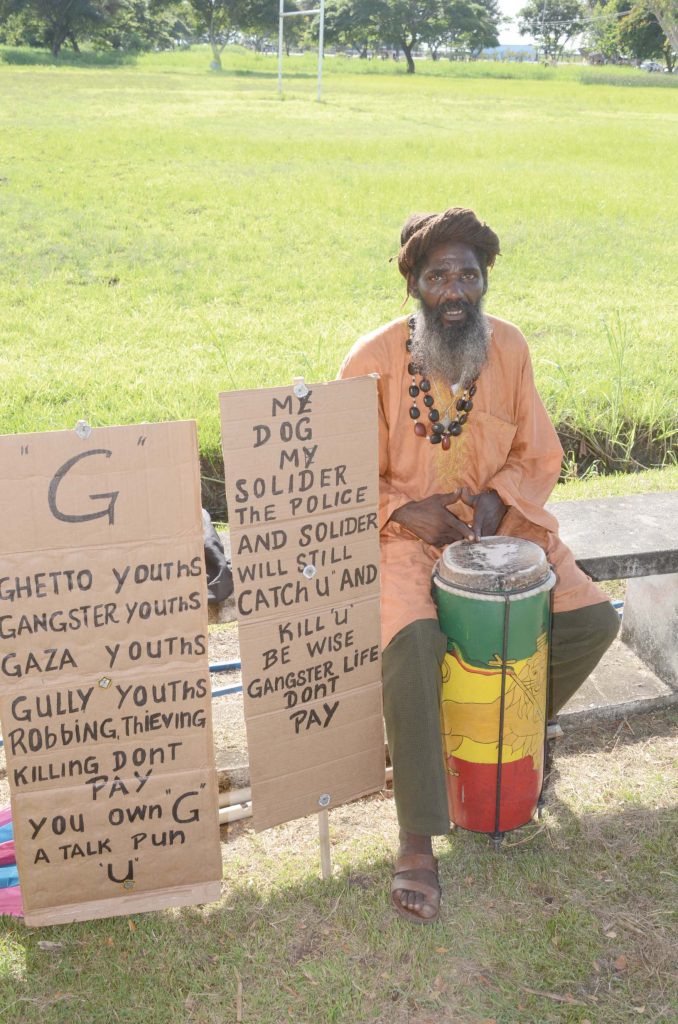 "G"
GHETTO YOUTHS
GANGSTER YOUTHS
GAZA YOUTHS
GULLY YOUTHS
ROBBING, THIEVING
KILLING DONT
PAY
YOU OWN "G"
A TALK PUN
"U"
ME
DOG
MY
SOLIDER
THE POLICE
AND SOLIDER
WILL STILL
CATCH U" AND
KILL "U"
BE WISE
GANGSTER LIFE
DONT
PAY